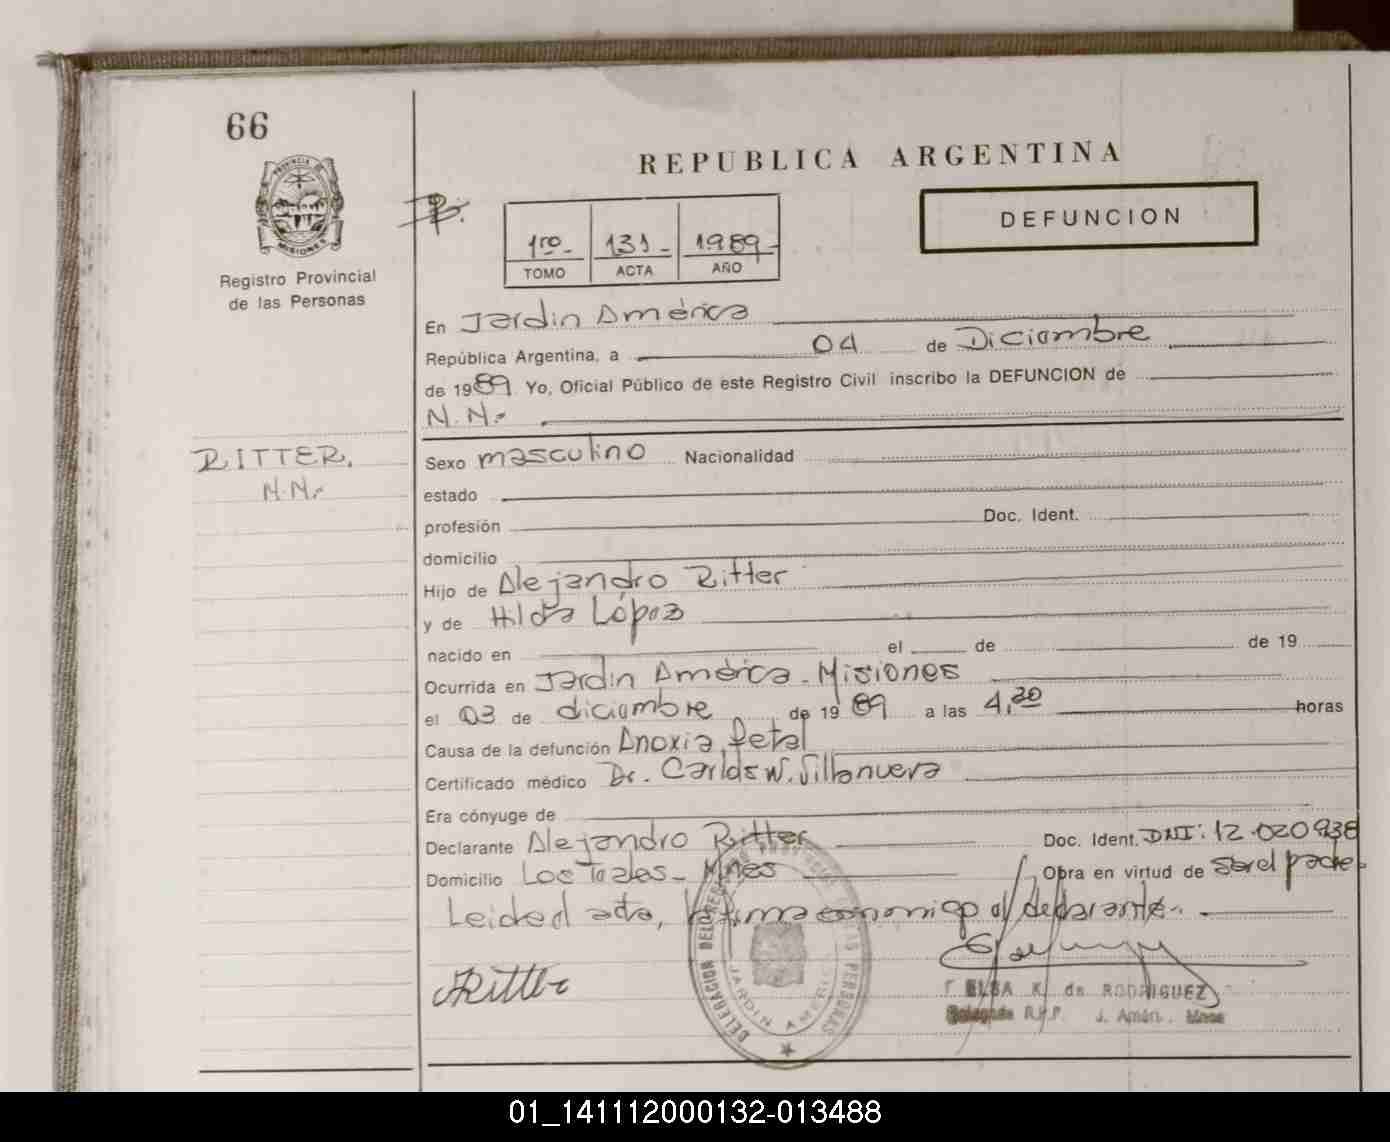 66
REPUBLICA ARGENTINA
PROVINCIA DE
MISIONES
Registro Provincial
de las Personas
1ro_ 131_ 1989_
TOMO ACTA AÑO
DEFUNCION
En Jardin América
República Argentina, a 04 de Diciembre
de 1989. Yo, Oficial Público de este Registro Civil inscribo la DEFUNCION de
N.N.-
RITTER.
N.N.-
Sexo masculino Nacionalidad
estado
profesión Doc. Ident.
domicilio
Hijo de Alejandro Ritter
y de Hilda López
nacido en el de de 19
Ocurrida en Jardin América - Misiones
el 03 de diciembre de 1989 a las 4,30 horas
Causa de la defunción Anoxia fetal
Certificado médico Dr. Carlos W. Villanueva
Era cónyuge de
Declarante Alejandro Ritter Doc. Ident. DNI: 12.020.938
Domicilio Los Teales - Mnes Obra en virtud de ser el padre.
Leida el acta, la firma conmigo el declarante.-
Ritter
ELSA K. de RODRIGUEZ
Delegada R.P.P. J. Amér. Mnes
JARDIN AMERICA
01_141112000132-013488